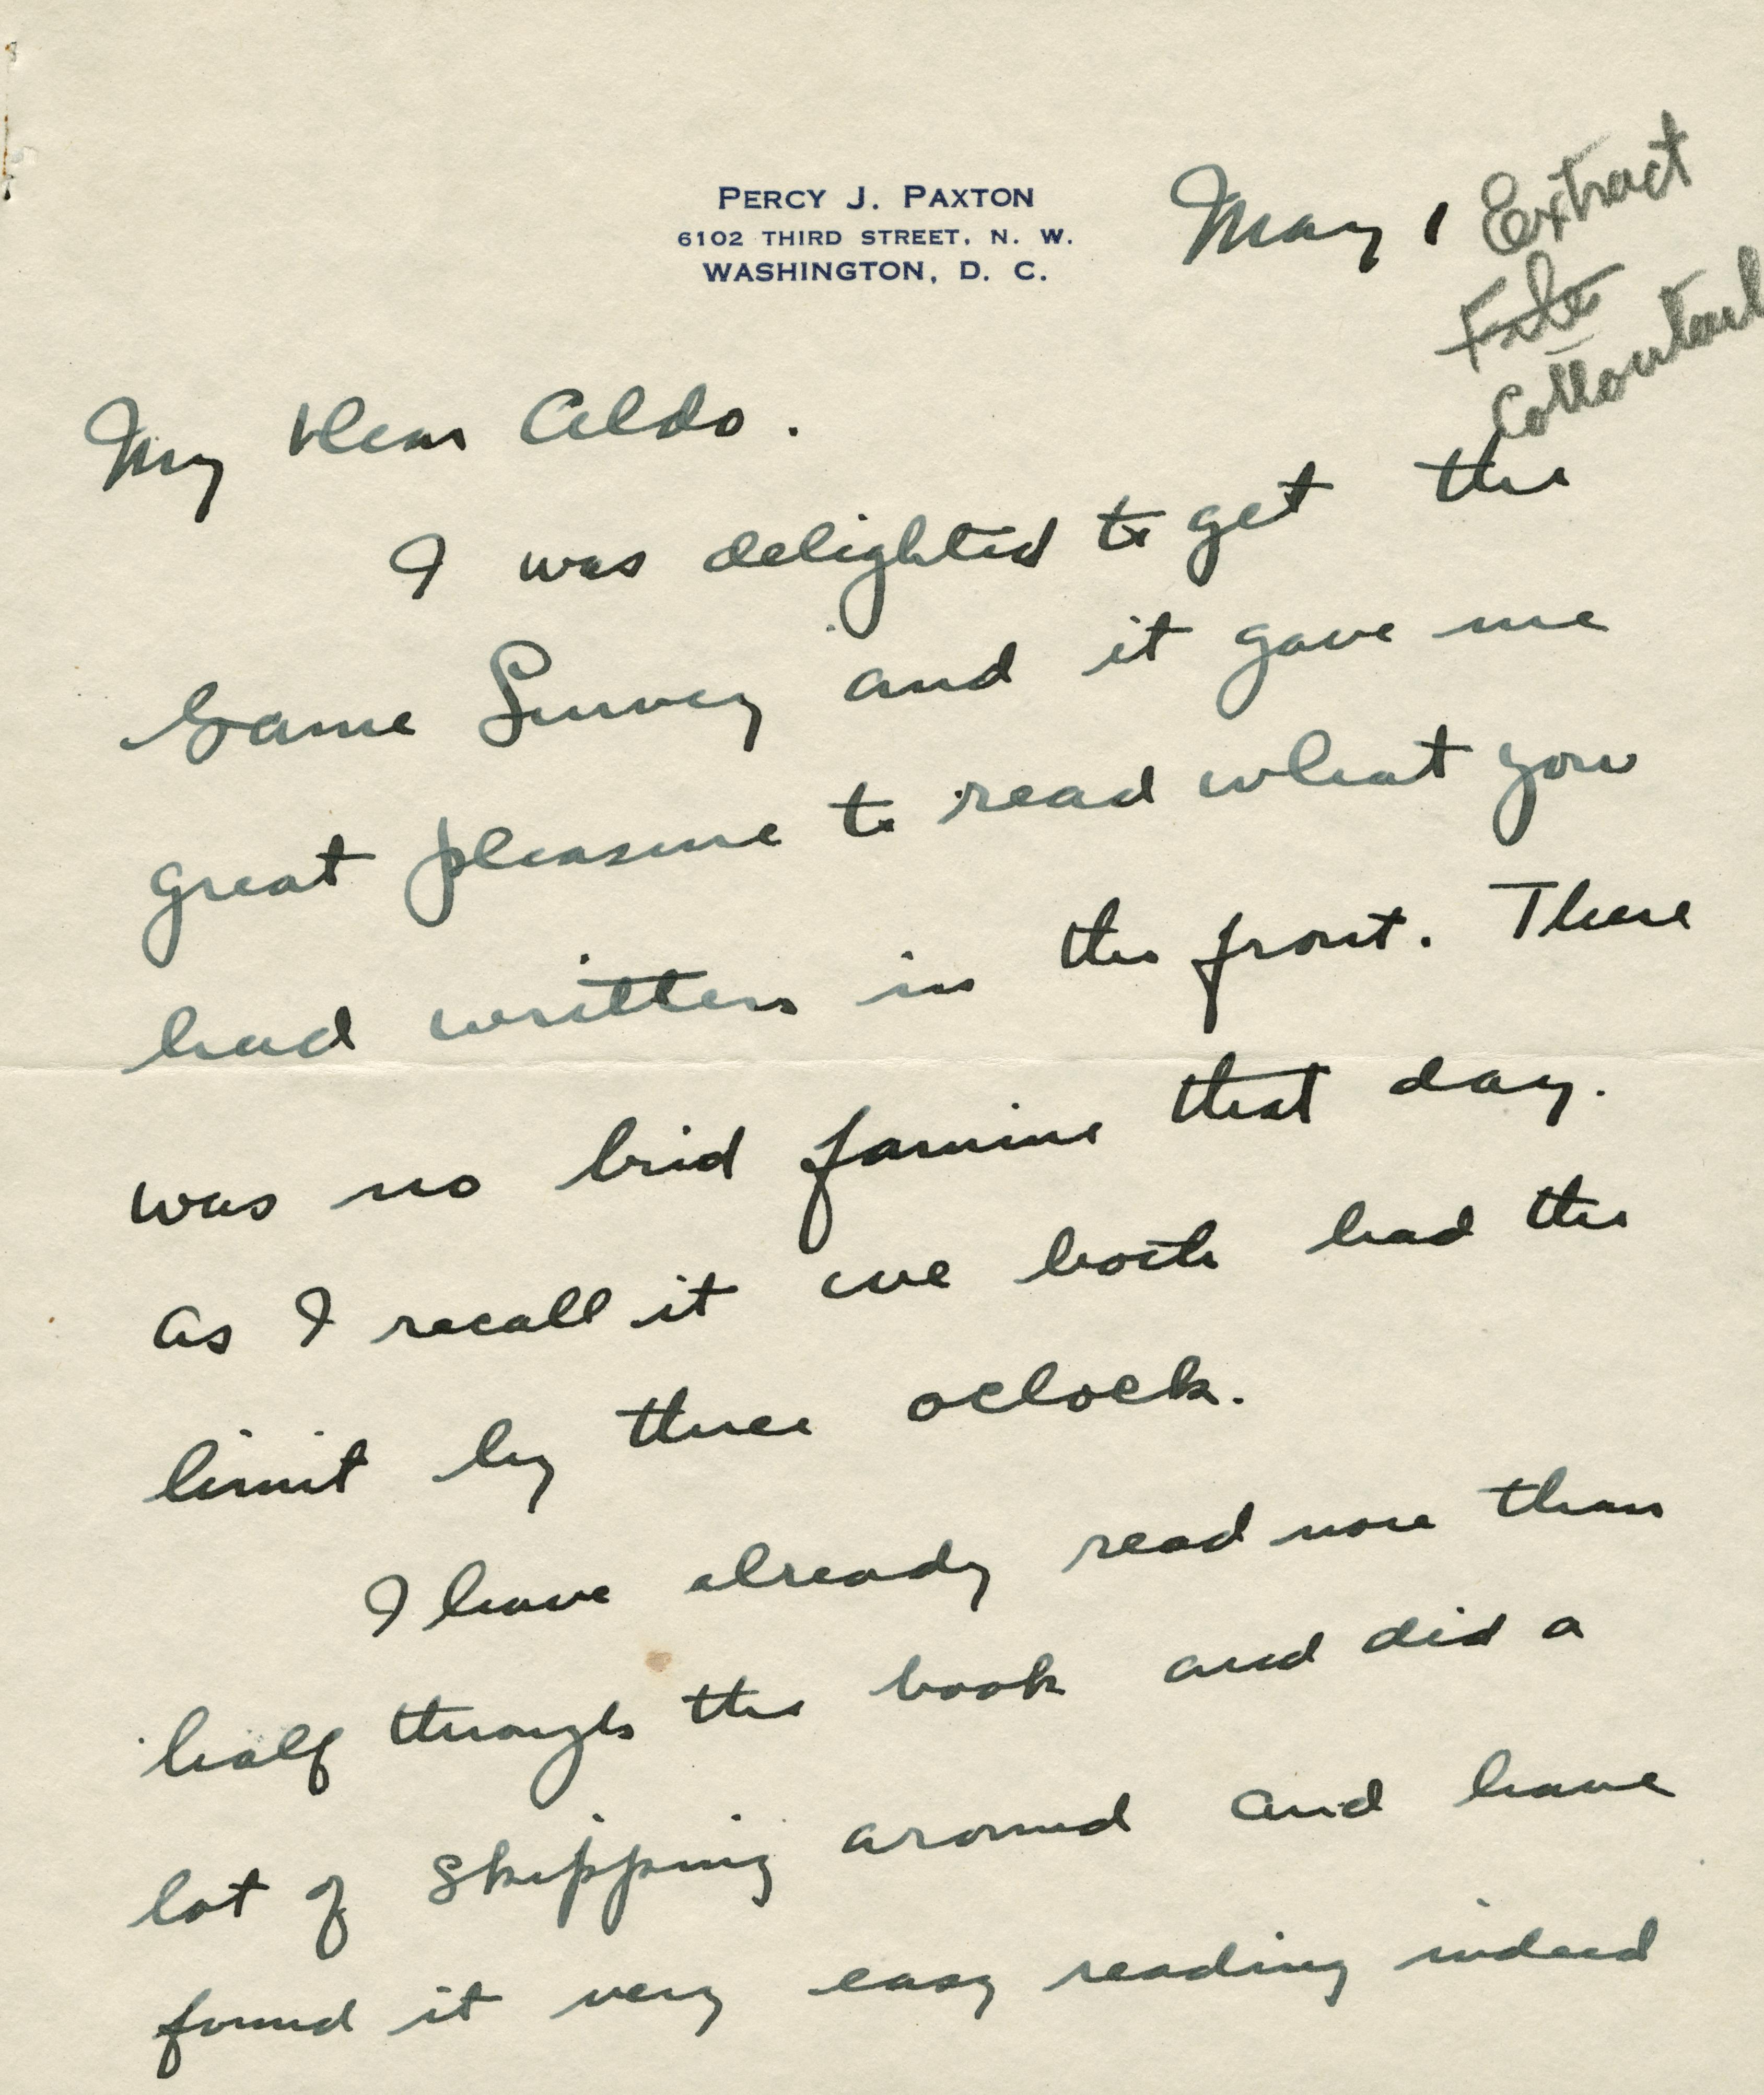 PERCY J. PAXTON
6102 THIRD STREET, N. W.
WASHINGTON, D. C.
May 1
Extract
My Dear Aldo.
I was delighted to get the
Game Survey and it gave me
great pleasure to read what you
had written in the front. There
was no brid famine that day.
as I recall it we both had the
limit by three oclock.
I have already read more than
half through the book and did a
lot of skipping around and have
found it very easy reading indeed